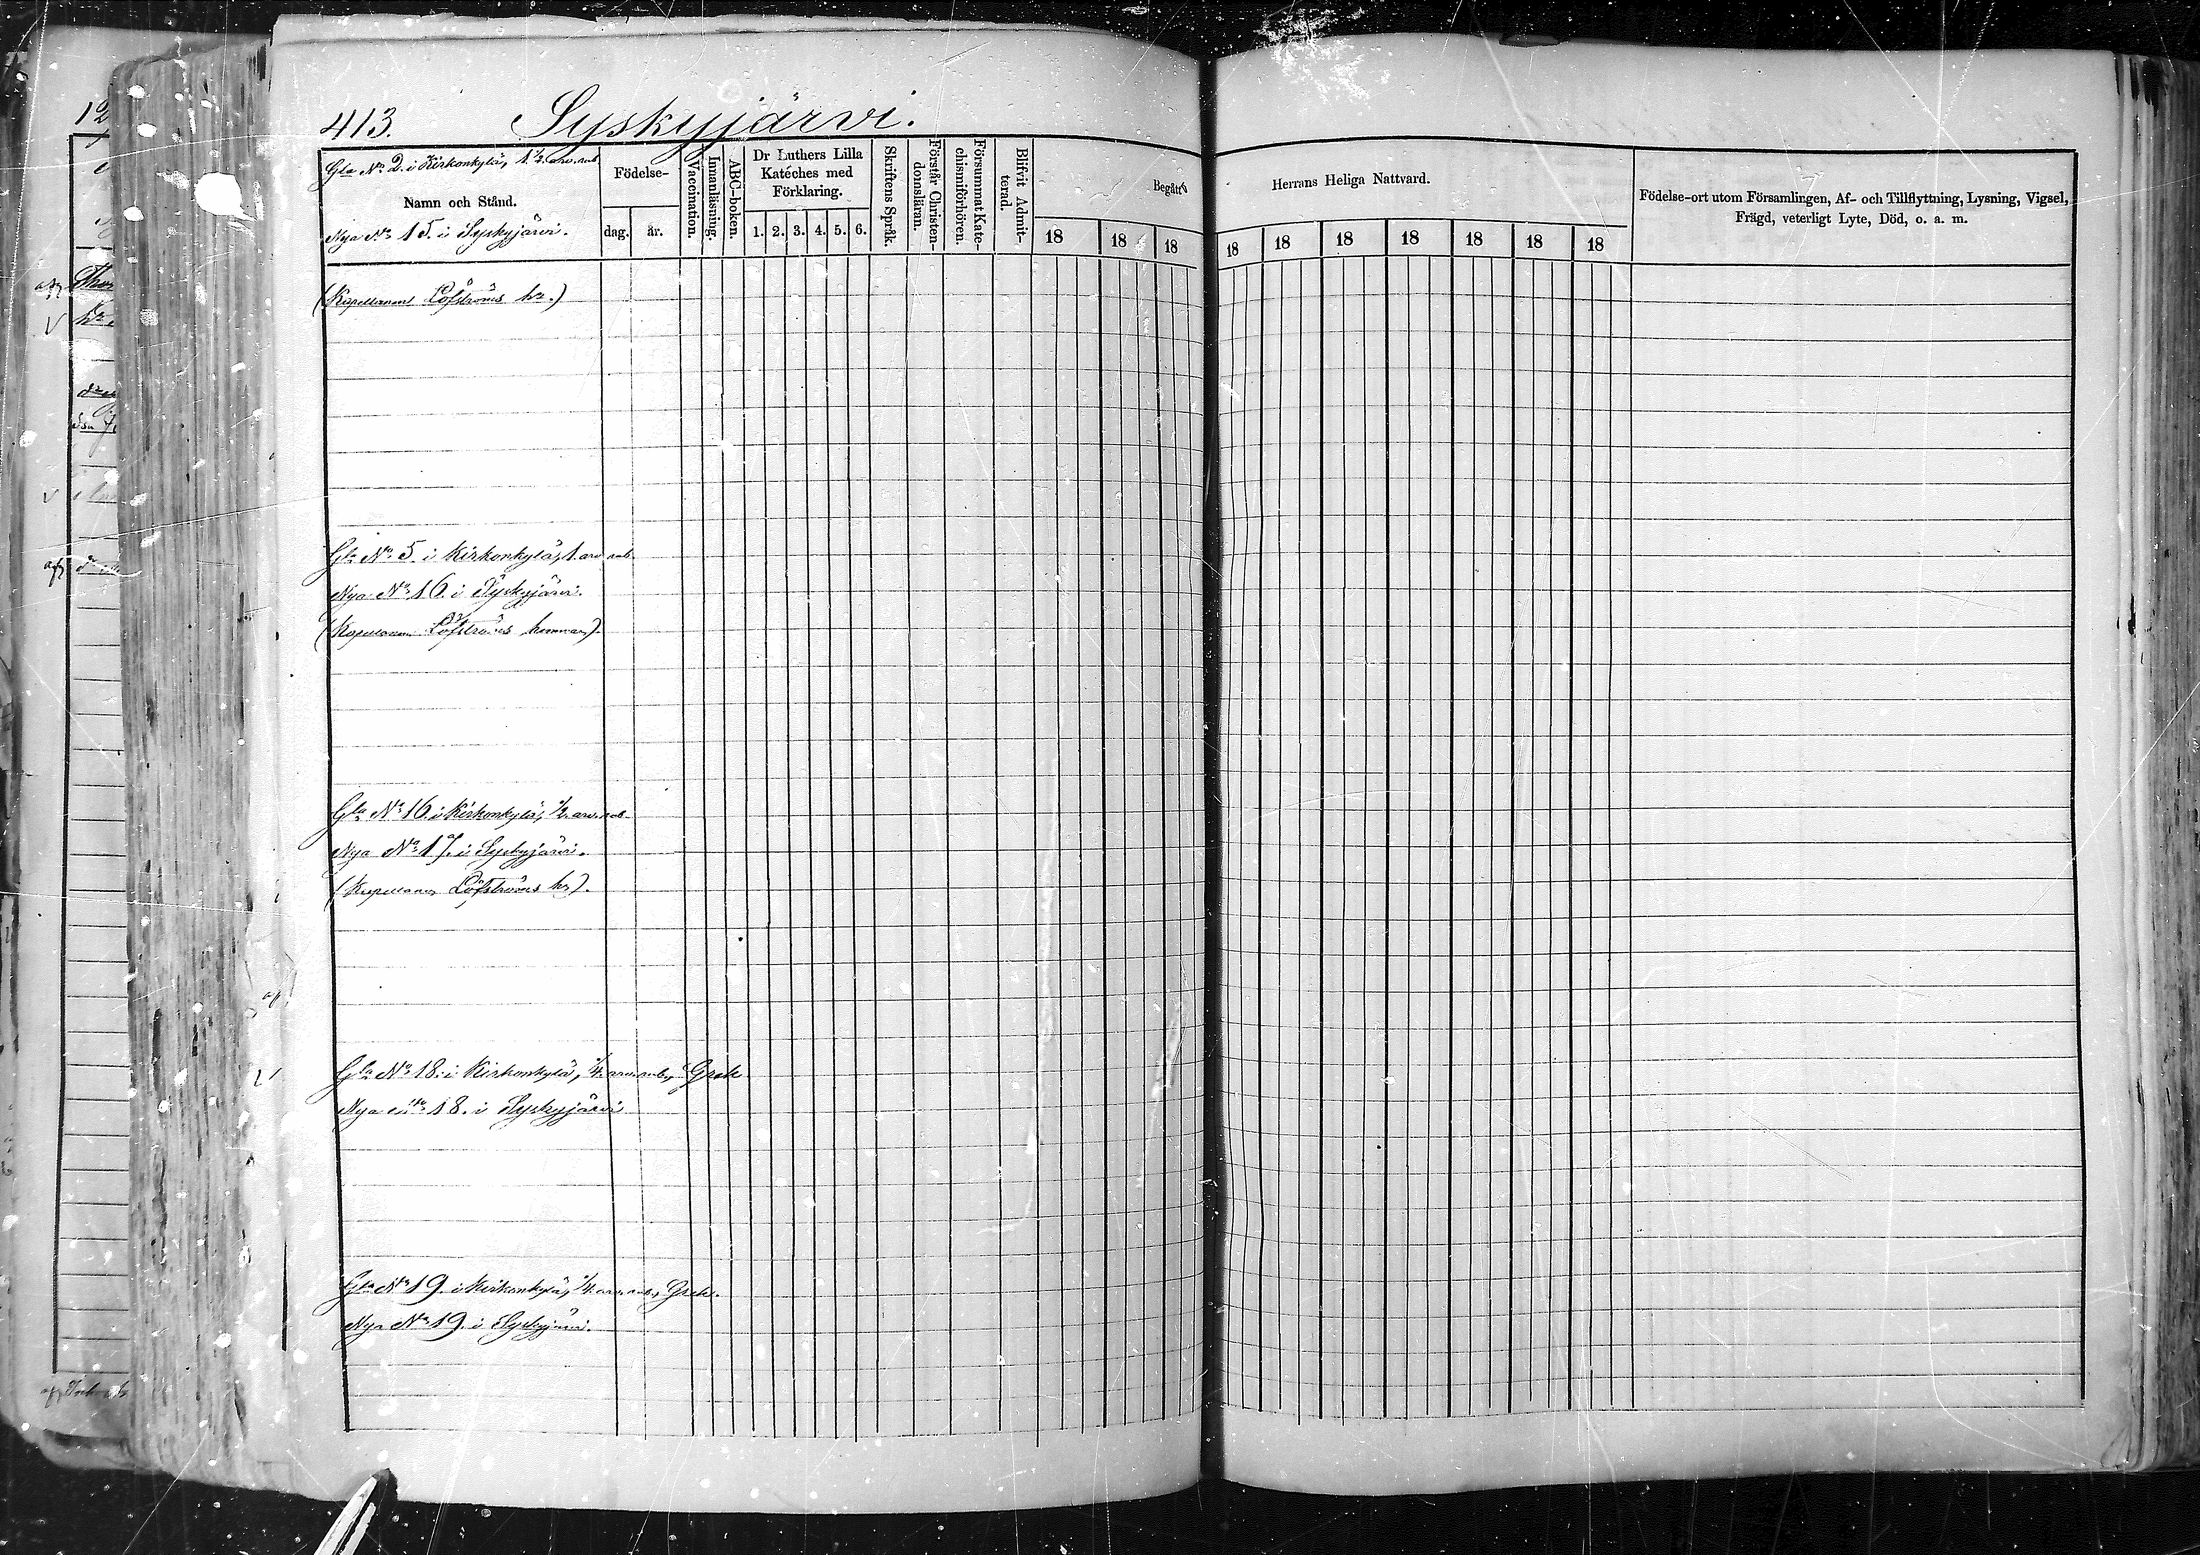 413. Syskyjärvi.
Gla No 2. i Kirkonkylä, 1 1/2. arv. rub
Namn och Stånd.
Nya No 15. i Syskyjärvi.
Födelse-
dag. år.
Vaccination.
Innanläsning.
ABC-boken.
Dr Luthers Lilla
Katéches med
Förklaring.
1. 2. 3. 4. 5. 6.
Skriftens Språk.
Förstår Christen-
domsläran.
Försummat Kate-
chismiförhören.
Blifvit Admit-
terad.
Begått
18 18 18
Herrans Heliga Nattvard.
18 18 18 18 18 18 18
Födelse-ort utom Församlingen, Af- och Tillflyttning, Lysning, Vigsel,
Frägd, veterligt Lyte, Död, o. a. m.
(Kapellanens Löfströms hr.)
Gla No 5. i Kirkonkylä, 1. arv. rub.
Nya No 16. i Syskyjärvi.
(Kapellanen Löfströms hemman).
Gla No 16. i Kirkonkylä, 1/2. arv. rub.
Nya No 17. i Syskyjärvi.
(Kapellanens Löfströms hr).
Gla No 18. i Kirkonkylä, 1/4. arv. rub., Grek
Nya No 18. i Syskyjärvi
Gla No 19. i Kirkonkylä, 1/4. arv. rub., Grek.
Nya No 19. i Syskyjärvi.